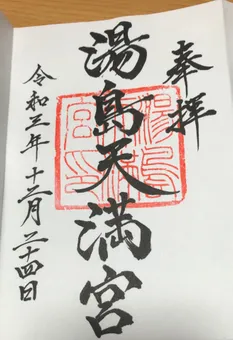 奉拝
湯島天満宮
令和三年十二月二十四日